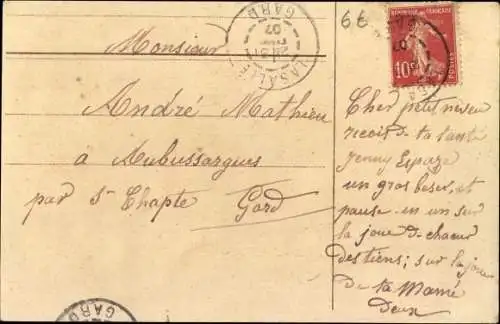 66
LASALLE
GARD
07
REPUBLIQUE FRANÇAISE
10c
POSTES
Monsieur
André Mathieu
à Aubussargues
par St Chapte Gard
Cher petit neveu
recoit de ta tante
Jenny Espaze
un gros beser, et
pause-en un sur
la joue de chacun
des tiens; sur la joue
de ta Mamé
Deux
GARD